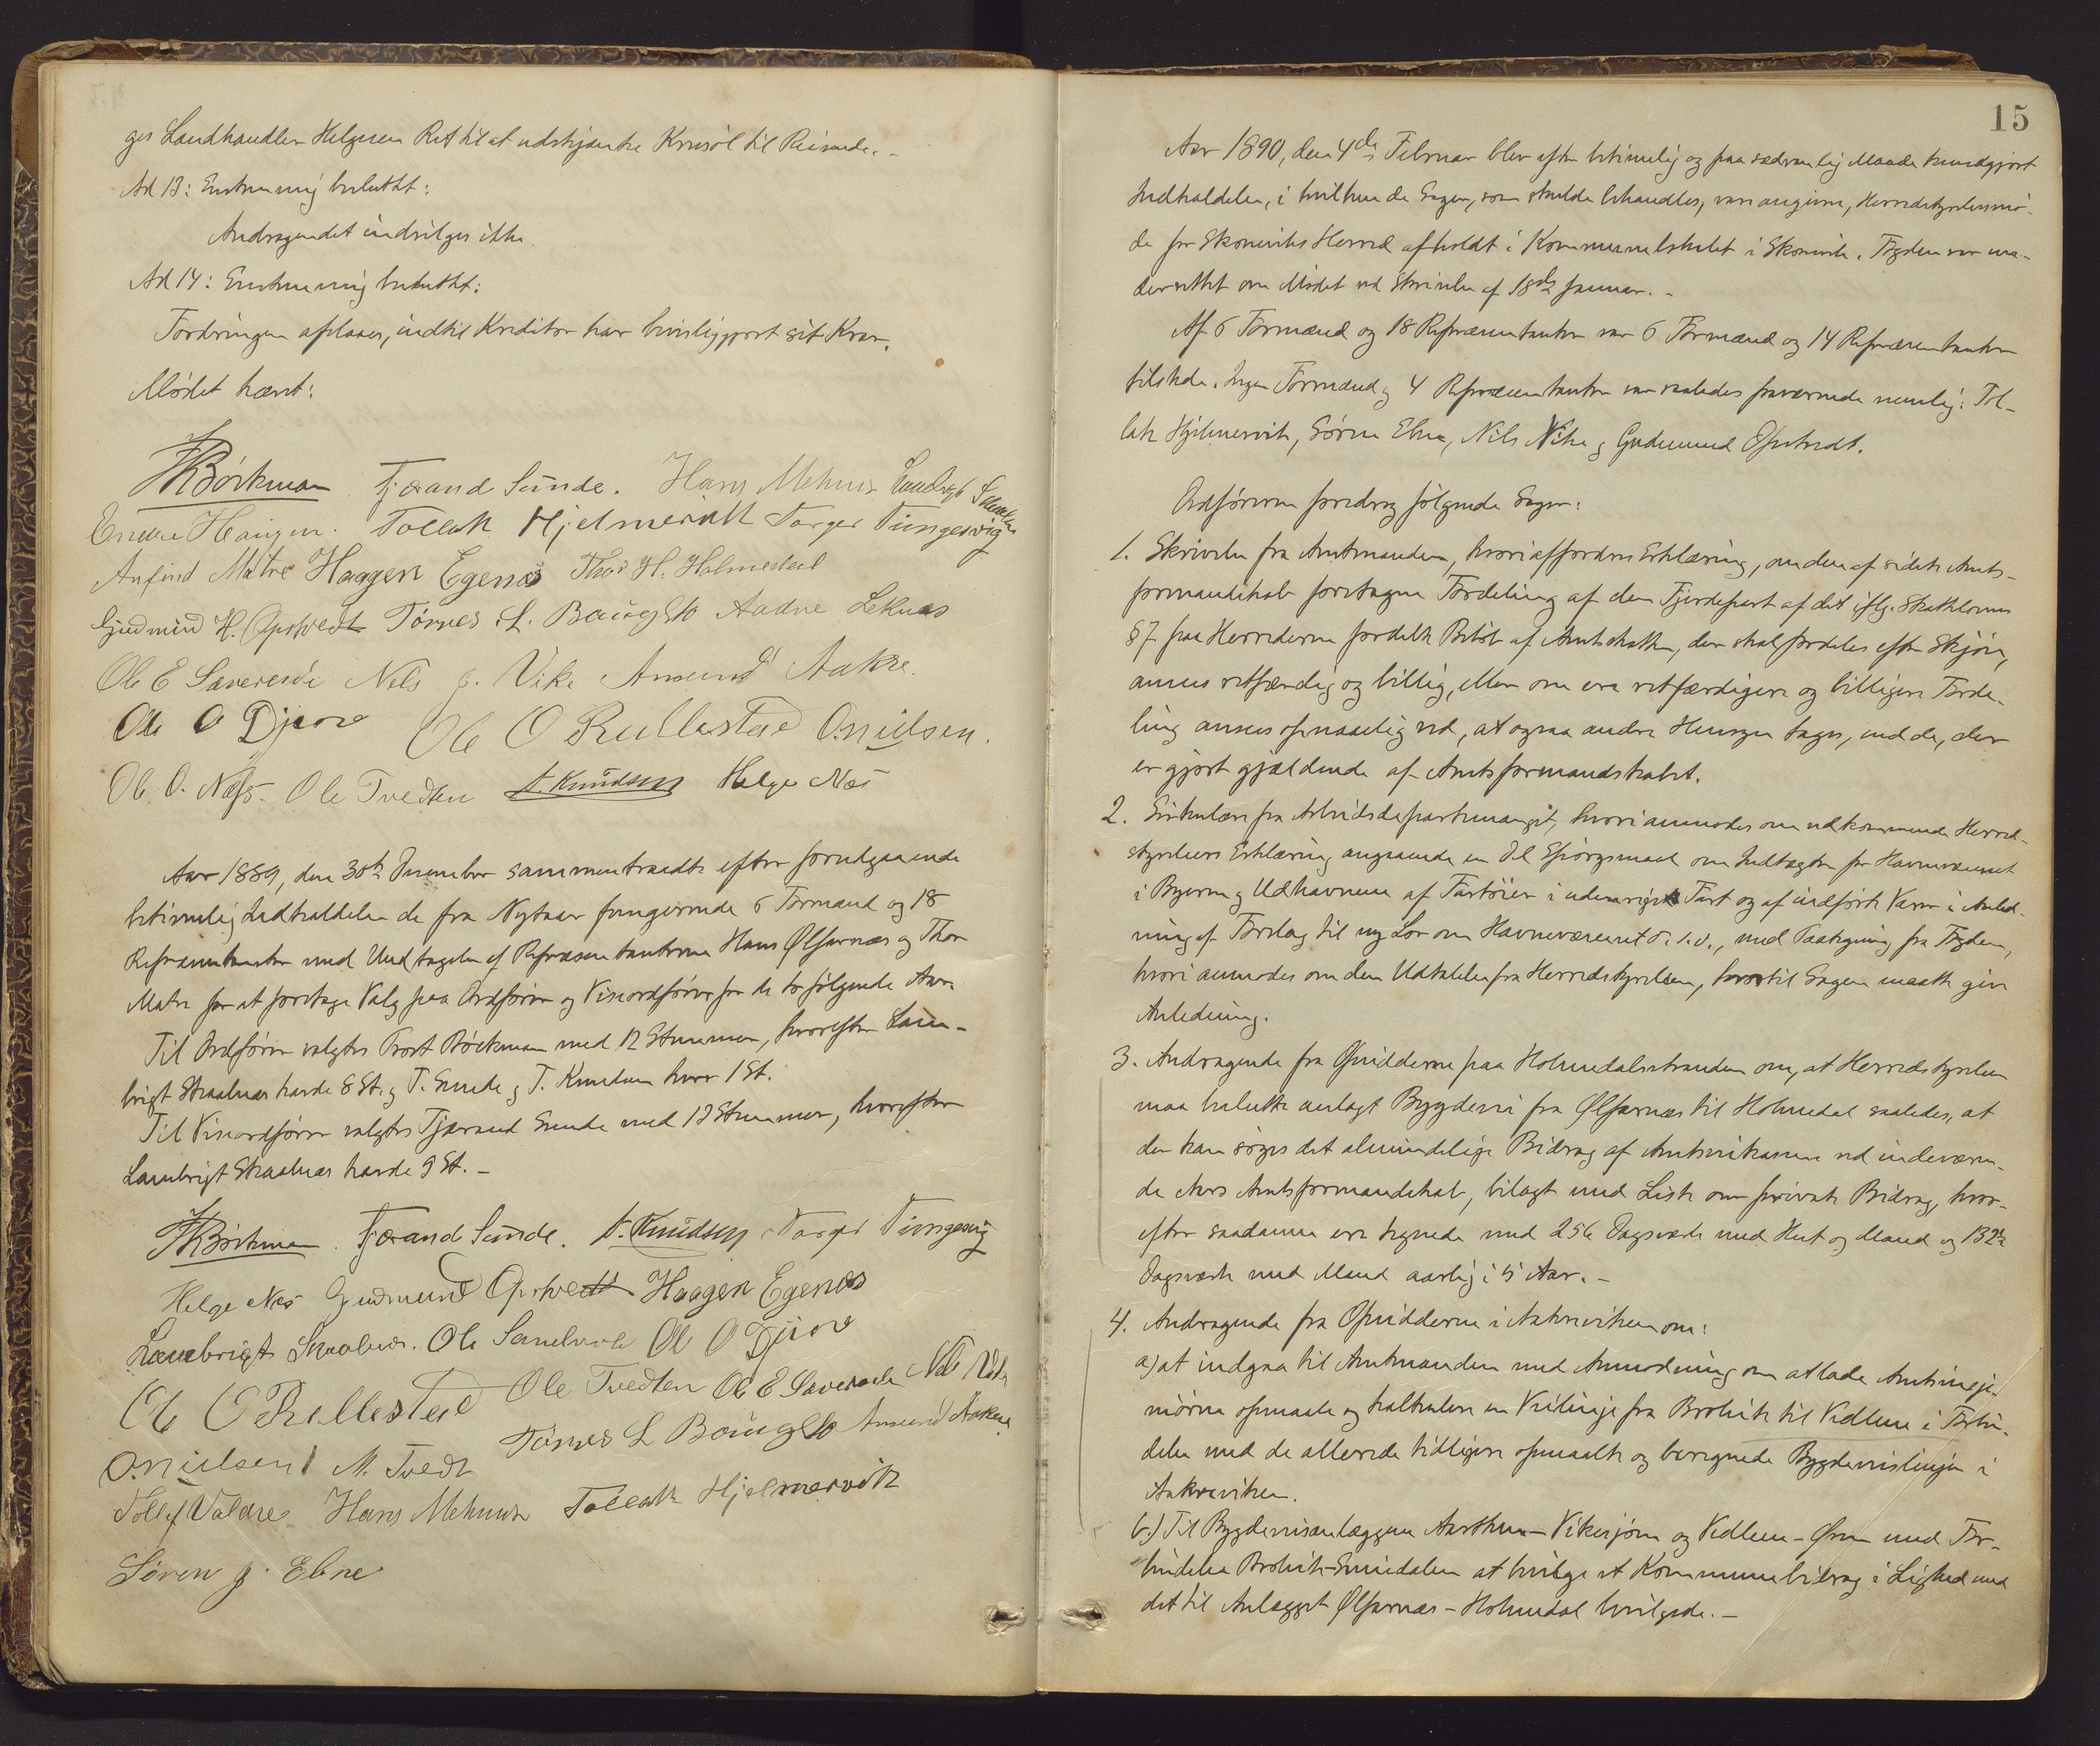 ges Landhandler Helgesen Ret til at udskjænke Kruüöl til Reisende. –
Ad 13: Enstemmig besluttet:
Andragendet indvilges ikke.
Ad 14: Enstemmig besluttet:
Fordringen afslaaes, indtil Kreditor har bevisliggjort sit Krav.
Mödet hævet:
Böckman Tjærand Sunde. Hans Mehus Lambrigt Skaalnes
Endre Haugen. Tollak Hjelmervik Torger Tungesvig
Anfind Matre Haagen Egenæs Thor H. Holmedal
Gudmund H. Opstvedt Tørres L. Baugsto Aadne Leknæs
Ole E Sævereide Nils J. Vike Amund Aakre.
Ole O Djuve Ole O Rullestad O. Nielsen.
Ole O. Næss. Ole Tvedten T. Knudsen Helge Næs
Aar 1889, den 30te December sammentraadte efter forudgaaende
betimelig Indkaldelse de fra Nytaar fungerende 6 Formænd og 18
Repræsentanter med Undtagelse af Repræsentanterne Hans Ølfarnæs og Thor
Matre for at foretage Valg paa Ordfører og Viceordfører for de to følgende Aar.
Til Ordfører valgtes Provst Böckman med 12 Stemmer, hvorefter Lam-
brigt Skaalnæs havde 8 St. og T. Sunde og T. Knudsen hver 1 St.
Til Viceordfører valgtes Tjærand Sunde med 12 Stemmer, hvorefter
Lambrigt Skaalnæs havde 9 St. –
Böckman. Tjærand Sunde. T. Knudsen Torger Tungesvig
Helge Næs Gudmund Opstvedt Haagen Egenæs
Lambrigt Skaalnes. Ole Sandvik Ole O Djuve
Ole O Rullestad Ole Tvedten Ole E Sævereide Nils Vike
O. Nielsen M. Tvedt Tørres L Baugsto Amund Aakre
Tollef Valdre Hans Mehus Tollak Hjelmervik
Søren J. Ebne
15
Aar 1890, den 4de Februar blev efter betimelig og paa sædvanlig Maade kundgjort
Indkaldelse, i hvilken de Sager, som skulde behandles, var angivne, Herredsstyrelsesmö-
de for Skonevik Herred afholdt i Kommunelokalet i Skonevik. Fogden var un-
derrettet om Mödet ved Skrivelse af 18de Januar. –
Af 6 Formænd og 18 Repræsentanter var 6 Formænd og 14 Repræsentanter
tilstede. Ingen Formænd og 4 Repræsentanter var saaledes fraværende nemlig: Tol-
lak Hjelmervik, Sören Ebne, Nils Vike og Gudmund Opstvedt.
Ordføreren foredrog følgende Sager:
1. Skrivelse fra Amtmanden, hvori affordres Erklæring, om den af sidste Amts-
formandskab foretagne Fordeling af den Fjerdepart af det iflg. Skattelovens
§ 7 paa Herrederne fordelte Beløb af Amtsskatten, der skal fordeles efter Skjön,
ansees retfærdig og billig, eller om en retfærdigere og billigere Forde-
ling ansees opnaaelig ved, at ogsaa andre Hensyn tages, end de, der
er gjort gjældende af Amtsformandskabet.
2. Cirkulære fra Arbeidsdepartementet, hvori anmodes om vedkommende Herred-
styrelsers Erklæring angaaende en Del Spörgsmaal om Indtægter for Havnevæsenet
i Byerne og Udhavnene af Fartöier i udenrigsk Fart og af indförte Varer i Anled-
ning af Forslag til ny Lov om Havnevæsenet o. s. v., med Paategning fra Fogden,
hvori anmodes om den Udtalelse fra Herredstyrelsen, hvortil Sagen maatte give
Anledning.
3. Andragende fra Opsidderne paa Holmedalsstranden om, at Herredsstyrelsen
maa beslutte anlagt Bygdevei fra Ølfarnæs til Holmedal saaledes, at
der kan söges det almindelige Bidrag af Amtsveikassen ved indeværen-
de Aars Amtsformandskab, bilagt med Liste om private Bidrag, hvor-
efter saadanne ere tegnede med 256 Dagsværk med Hest og Mand og 132½
Dagsværk med Mand aarlig i 5 Aar. –
4. Andragende fra Opsidderne i Aakreviken om:
a) at indgaa til Amtmanden med Anmodning om at lade Amtsingje-
niören opmaale og kalkulere en Veilinje fra Brokvik til Vidlune i Forbin-
delse med de allerede tidligere opmaalte og beregnede Bygdeveislinjer i
Aakreviken.
b.) Til Bygdeveisanlæggene Aarthun – Vikesjöen og Vidlune – Ören med For-
bindelse Brokvik – Smiedalen at bevilge et Kommunebidrag i Lighed med
det til Anlægget Ølfarnæs – Holmedal bevilgede. –